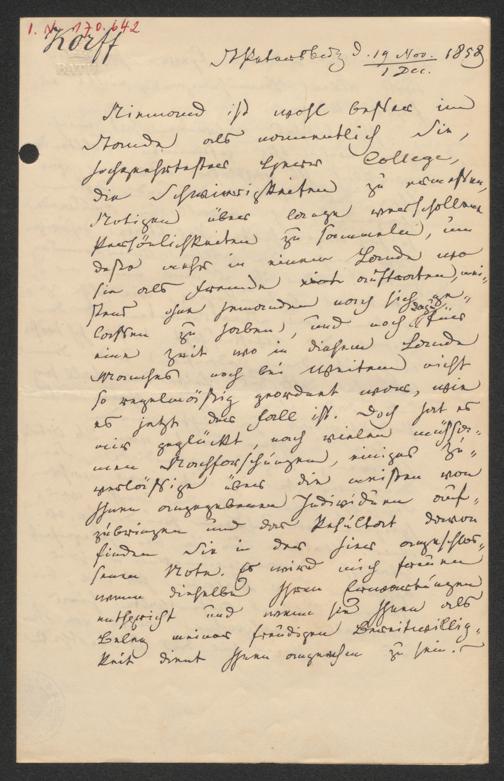 I. N. 170.642
Korff
St Petersburg d. 19 Nov. / 1 Dec. 1858
Niemand ist wohl besser im
Stande als namentlich Sie,
hochgeehrtester Herr College,
die Schwierigkeiten zu ermessen,
Notizen über lange verschollene
Persönlichkeiten zu sammeln, um
desto mehr in einem Lande wo
sie als Fremde auftraten, mei-
stens ohne jemanden nach sich ge-
lassen zu haben, und noch dazu für
eine Zeit wo in diesem Lande
Manches noch bei Weitem nicht
so regelmässig geordnet war, wie
es jetzt der Fall ist. Doch hat es
mir geglückt, nach vielen mühsa-
men Nachforschungen, einiges Zu-
verlässige über die meisten von
Ihnen angegebenen Individuen auf-
zubringen und das Resultat davon
finden Sie in der hier angeschlos-
senen Note. Es wird mich freuen
wenn dieselbe Ihren Erwartungen
entspricht und wenn sie Ihnen als
Beleg meiner freudigen Bereitwillig-
keit dient Ihnen angenehm zu sein.